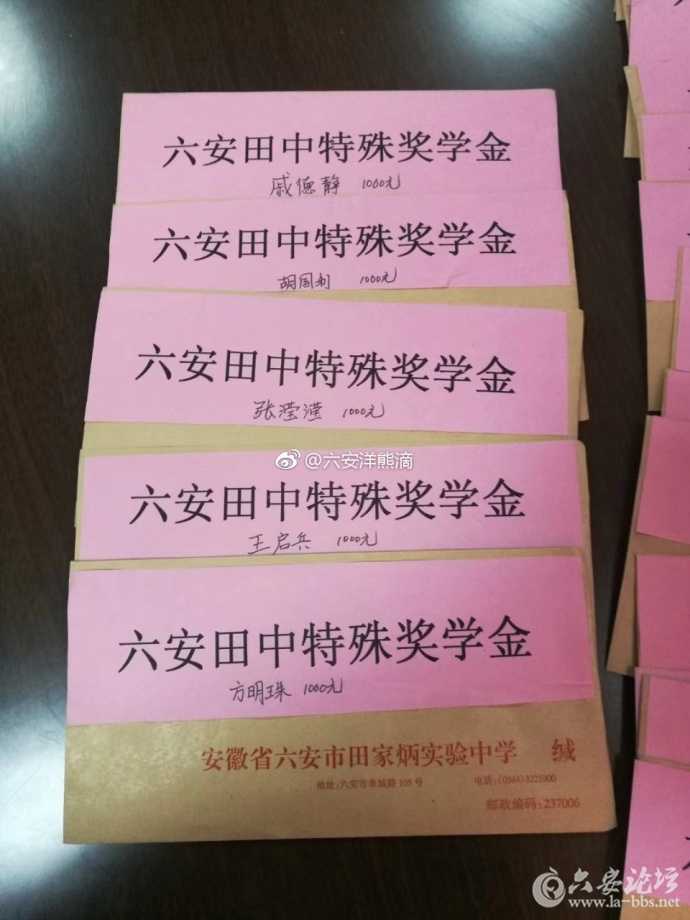 六安田中特殊奖学金
戚德静 1000元
六安田中特殊奖学金
胡国利 1000元
六安田中特殊奖学金
张滢滢 1000元
@六安洋熊滴
六安田中特殊奖学金
王启兵 1000元
六安田中特殊奖学金
方明珠 1000元
安徽省六安市田家炳实验中学 缄
地址:六安市皋城路 105 号 电话:(0564)3221900
邮政编码:237006
六安论坛
www.la-bbs.net